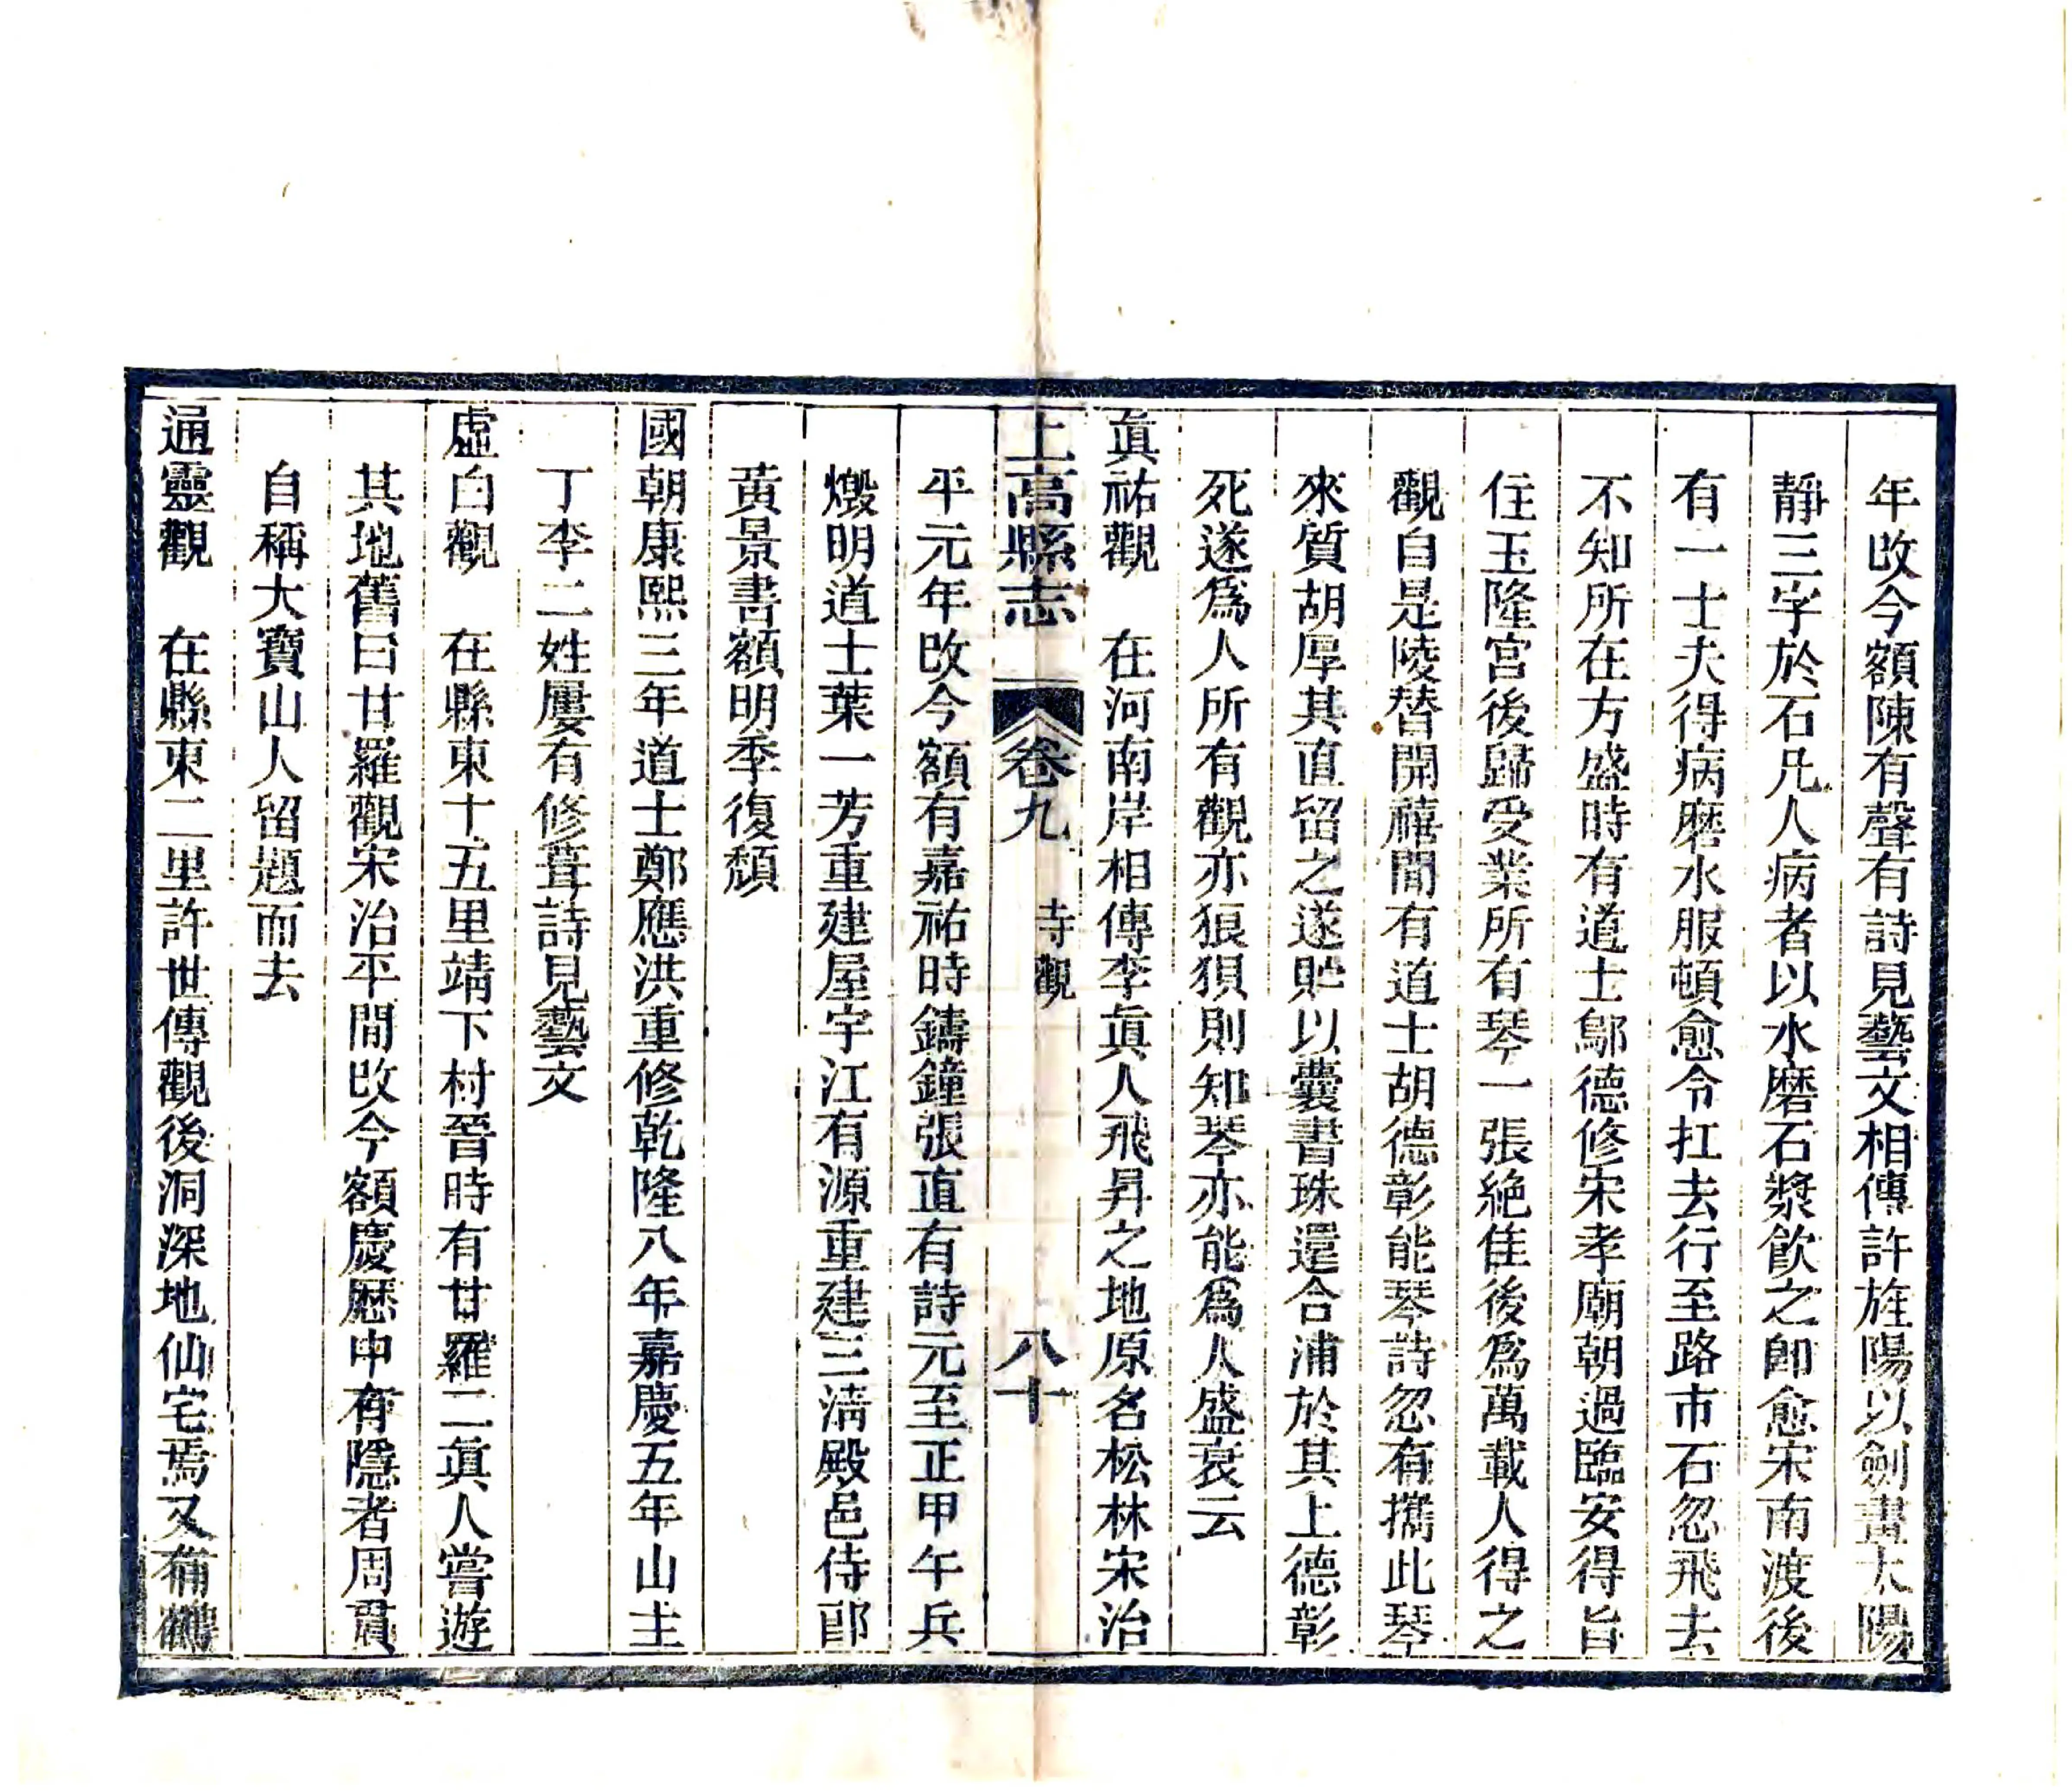 年改今額陳有聲有詩見藝文相傳許旌陽以劍畫太陽
靜三字於石凡人病者以水磨石漿飮之卽愈宋南渡後
有一士夫得病磨水服頓愈令扛去行至路市石忽飛去
不知所在方盛時有道士鄔德修宋孝廟朝過臨安得旨
住玉隆宮後歸受業所有琴一張絶佳後爲萬載人得之
觀自是陵替開禧間有道士胡德彰能琴詩忽有攜此琴
來質胡厚其直留之遂貯以囊書珠還合浦於其上德彰
死遂爲人所有觀亦狼狽則知琴亦能爲人盛衰云
眞祐觀　在河南岸相傳李眞人飛昇之地原名松林宋治
上高縣志　卷九　寺觀　八十
平元年改今額有嘉祐時鑄鐘張直有詩元至正甲午兵
燬明道士葉一芳重建屋宇江有源重建三淸殿邑侍郎
黃景書額明季復頹
國朝康熙三年道士鄭應洪重修乾隆八年嘉慶五年山主
丁李二姓屢有修葺詩見藝文
虛白觀　在縣東十五里靖下村晉時有甘羅二眞人嘗遊
其地舊曰甘羅觀宋治平間改今額慶歷中有隱者周貫
自稱大寶山人留題而去
通靈觀　在縣東二里許世傳觀後洞深地仙宅焉又有鶴